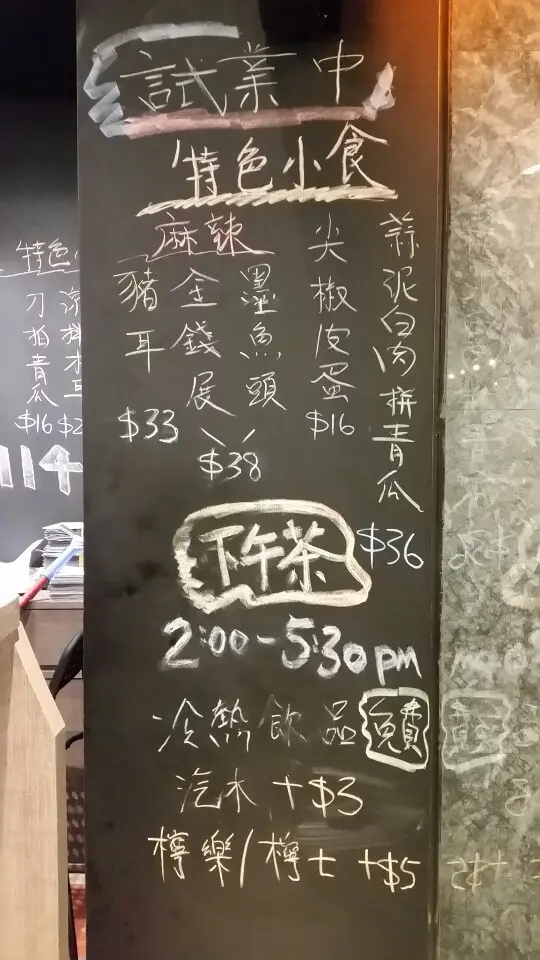 試業中
特色小食
蒜泥白肉拼青瓜
$36
尖椒皮蛋
$16
麻辣
墨魚頭
金錢展
$38
豬耳
$33
下午茶
2:00-5:30pm
冷熱飲品免費
汽水 +$3
檸樂/檸七 +$5
特色
涼拌木耳
$2
刀拍青瓜
$16
114